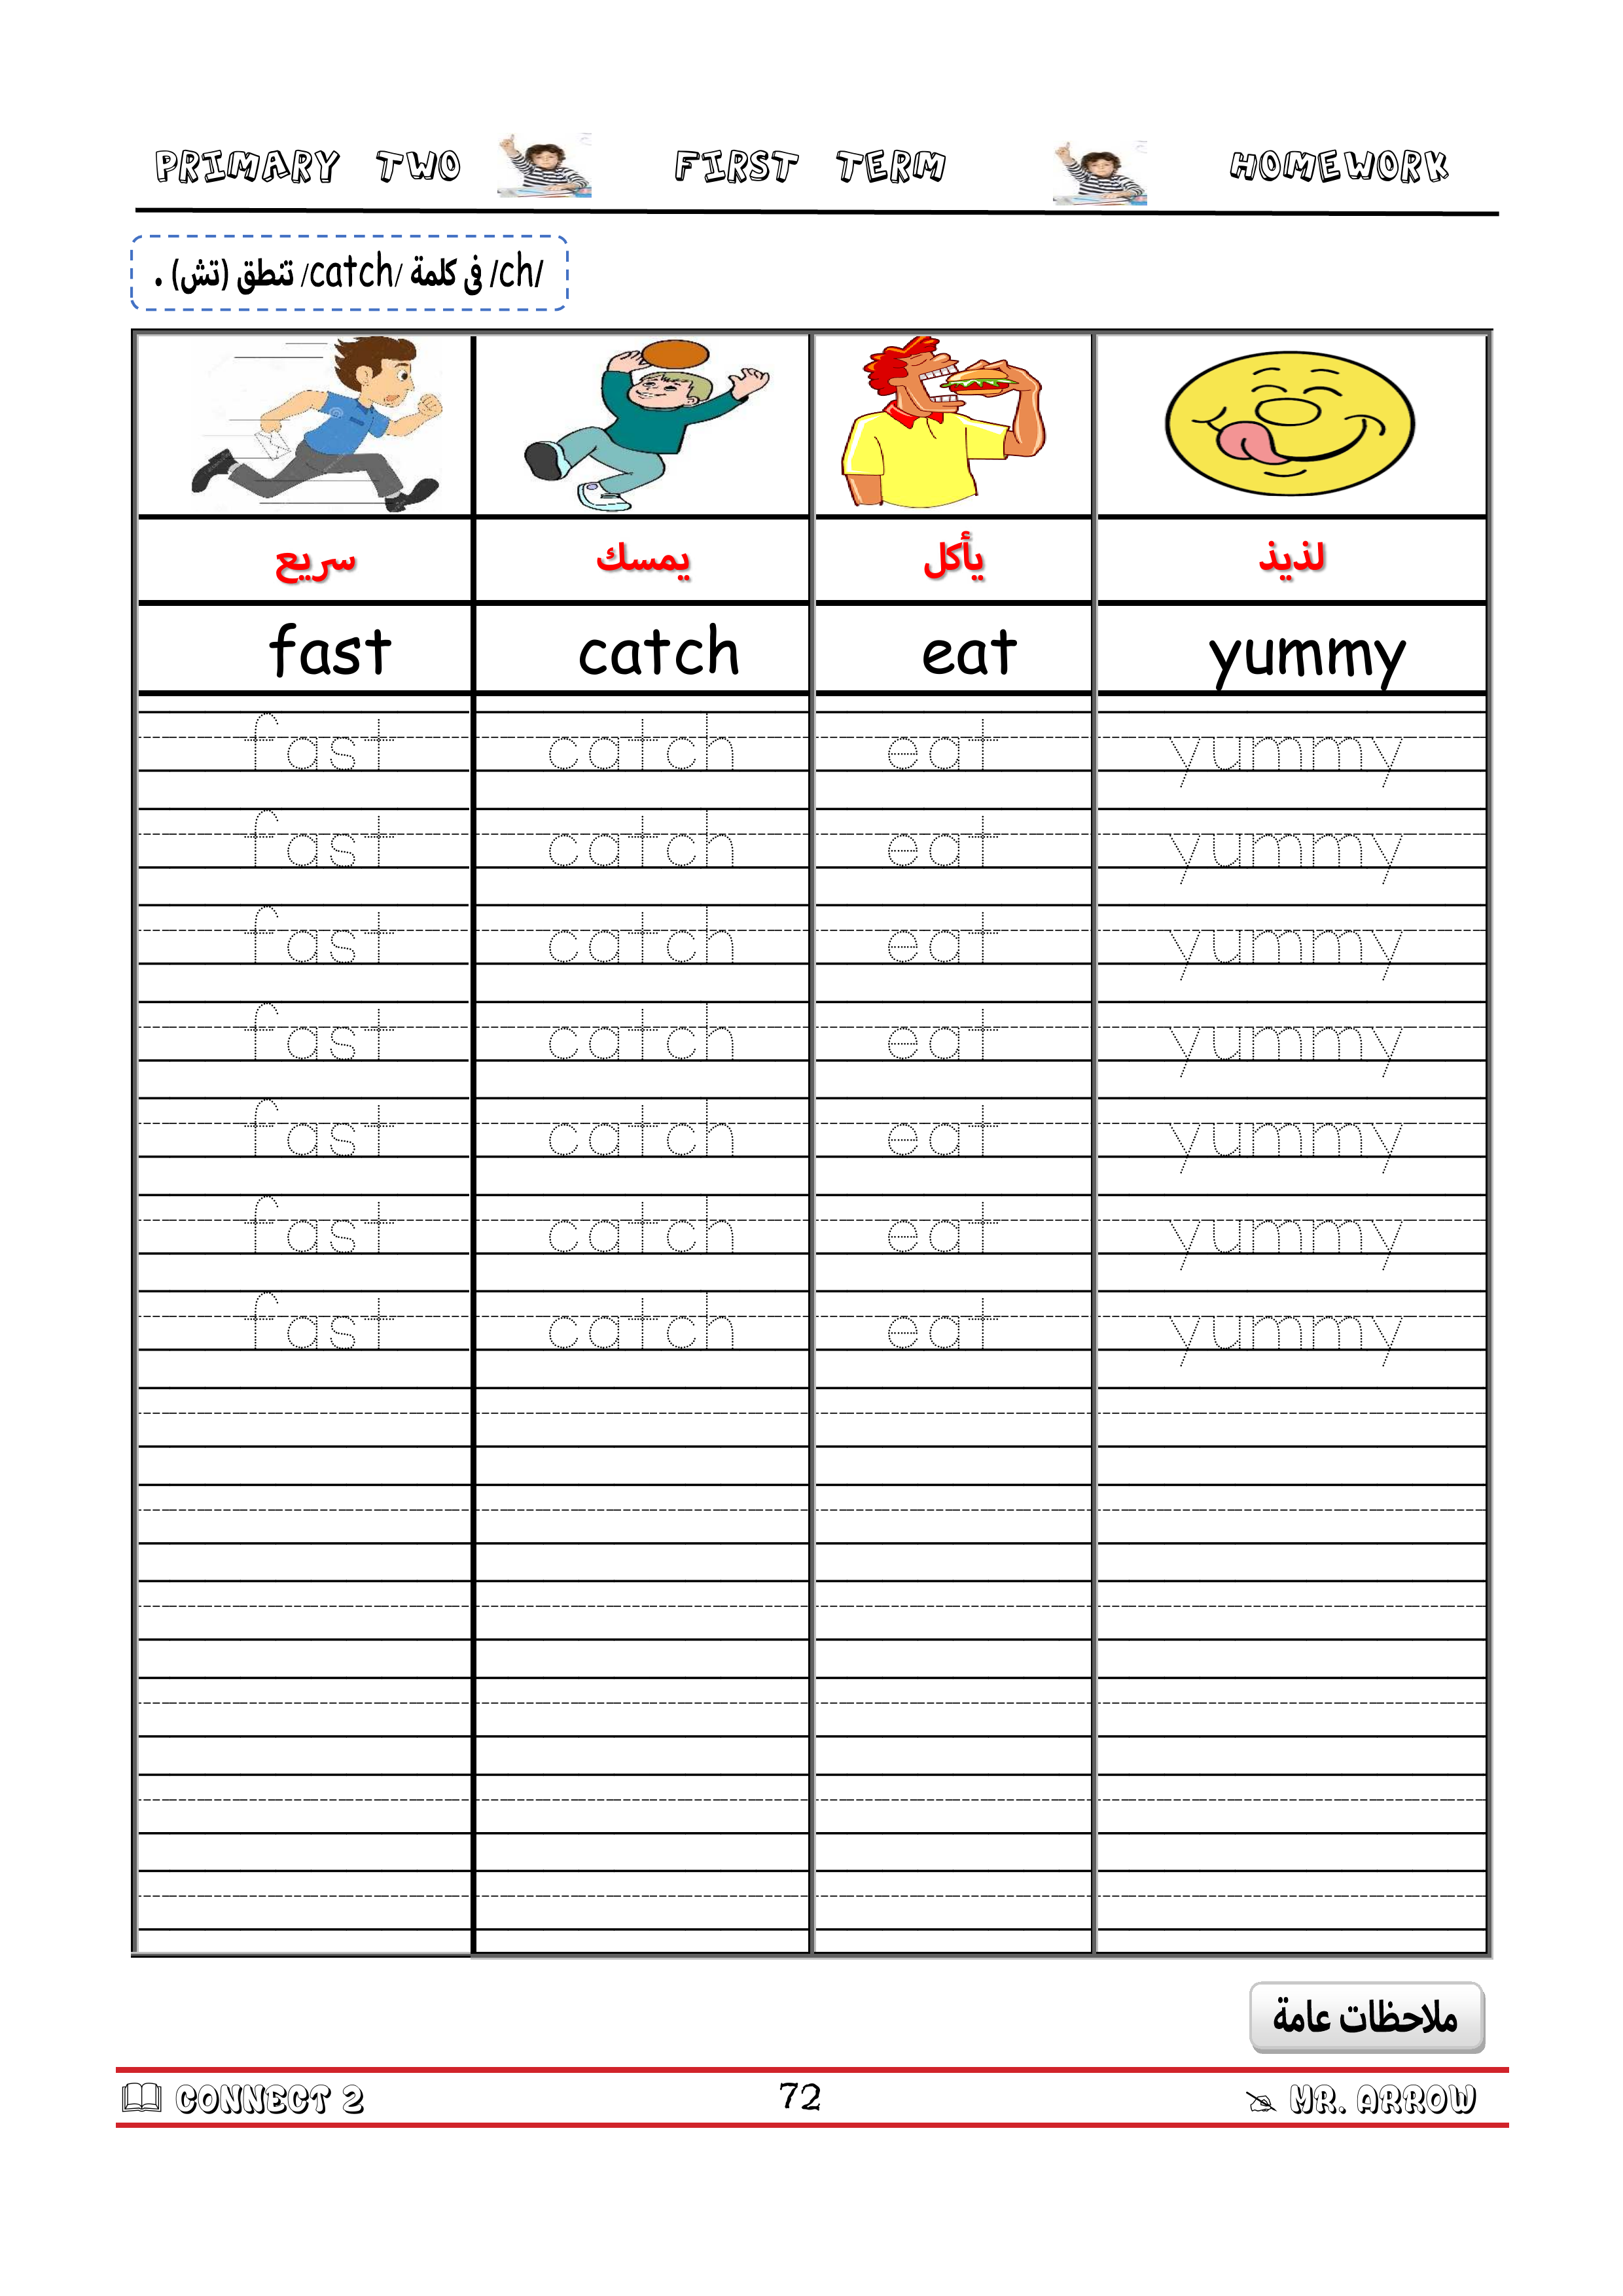 PRIMARY TWO FIRST TERM HOMEWORK
/ch/ فى كلمة /catch/ تنطق (تش) .
سريع يمسك يأكل لذيذ
fast catch eat yummy
fast catch eat yummy
fast catch eat yummy
fast catch eat yummy
fast catch eat yummy
fast catch eat yummy
fast catch eat yummy
fast catch eat yummy
ملاحظات عامة
CONNECT 2 72 MR. ARROW